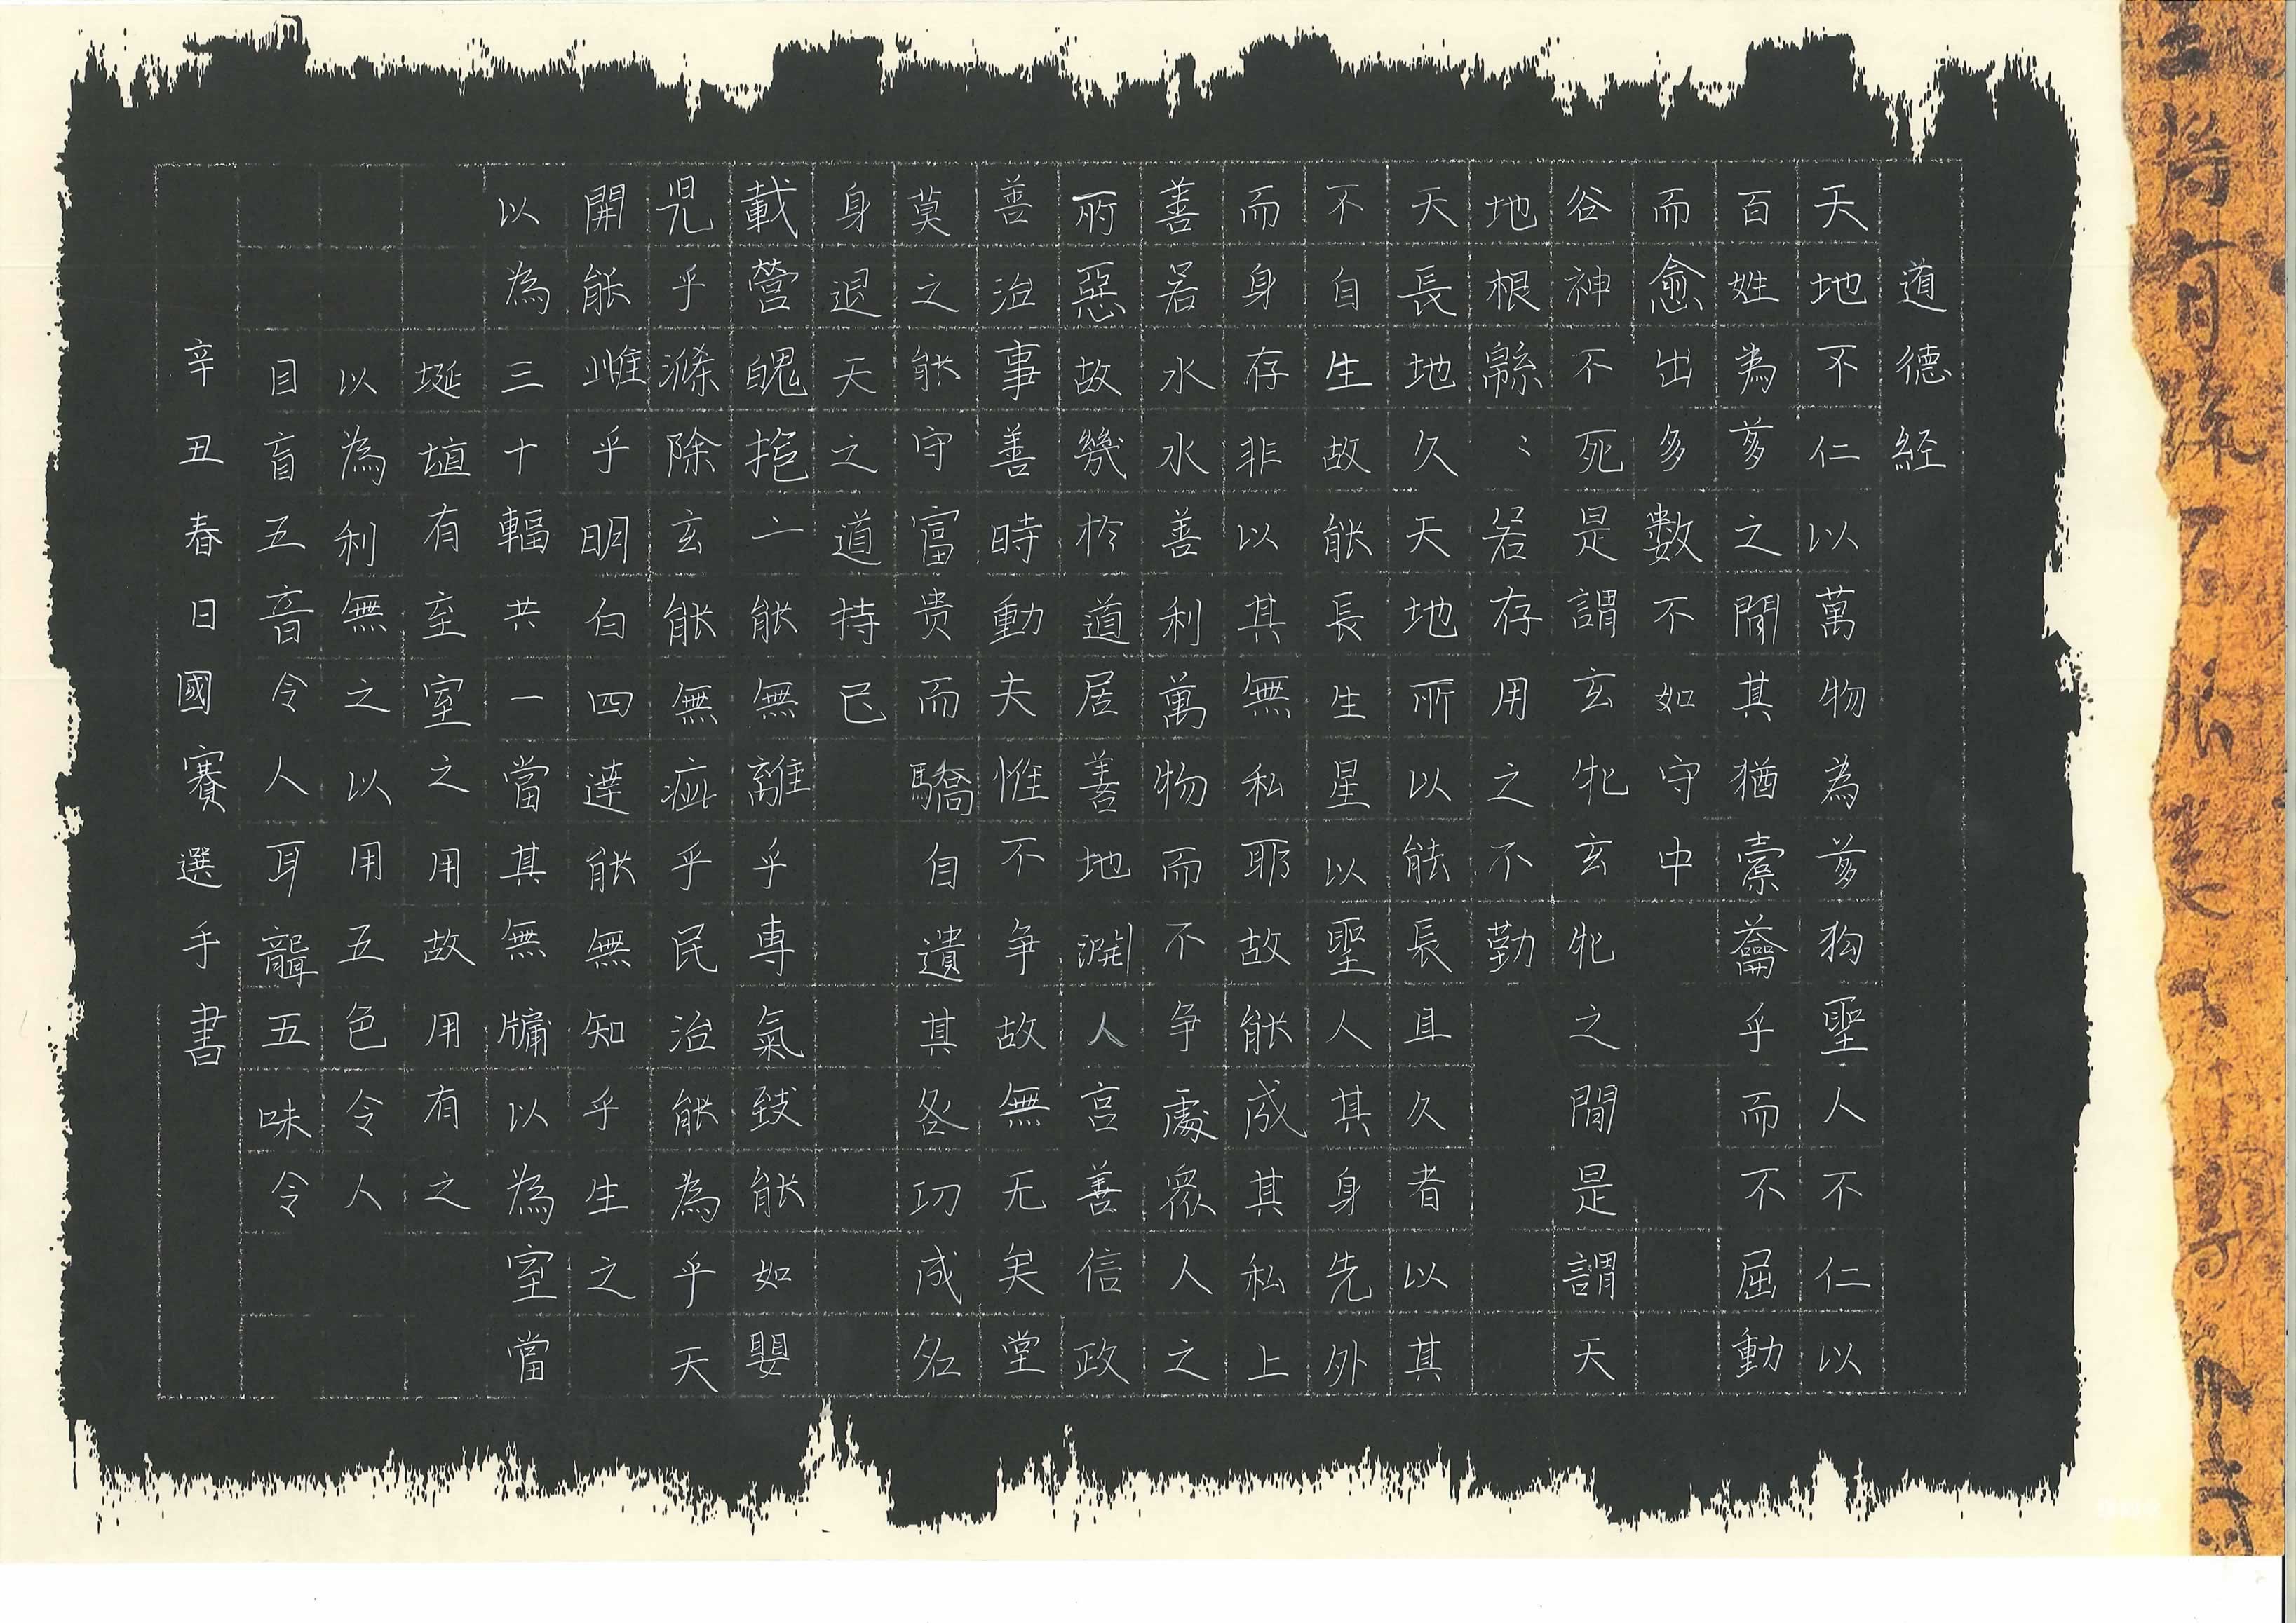 道德經
天地不仁以萬物為芻狗聖人不仁以
百姓為芻之間其猶橐籥乎而不屈動
而愈出多數不如守中
谷神不死是謂玄牝玄牝之間是謂天
地根緜〻若存用之不勤
天長地久天地所以能長且久者以其
不自生故能長生星以聖人其身先外
而身存非以其無私耶故能成其私上
善若水水善利萬物而不争處眾人之
所惡故幾於道居善地淵人言善信政
善治事善時動夫惟不争故無无矣堂
莫之能守富贵而驕自遺其咎功成名
身退天之道持已
載營魄抱一能無離乎專氣致能如嬰
児乎滌除玄能無疵乎民治能為乎天
開能雌乎明白四達能無知乎生之
以為三十輻共一當其無牖以為室當
埏埴有室室之用故用有之
以為利無之以用五色令人
目盲五音令人耳聾五味令
辛丑春日國賽選手書